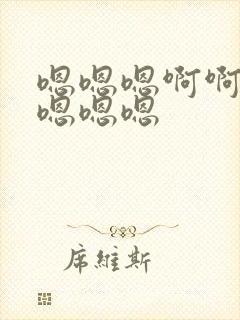 嗯嗯嗯啊啊
嗯嗯嗯
席維斯